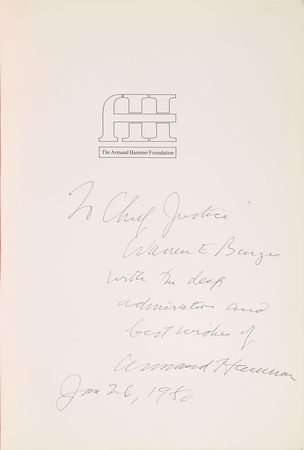 AH
The Armand Hammer Foundation
To Chief Justice
Warren E Burger
with the deep
admiration and
best wishes of
Armand Hammer
Jan 26, 1980